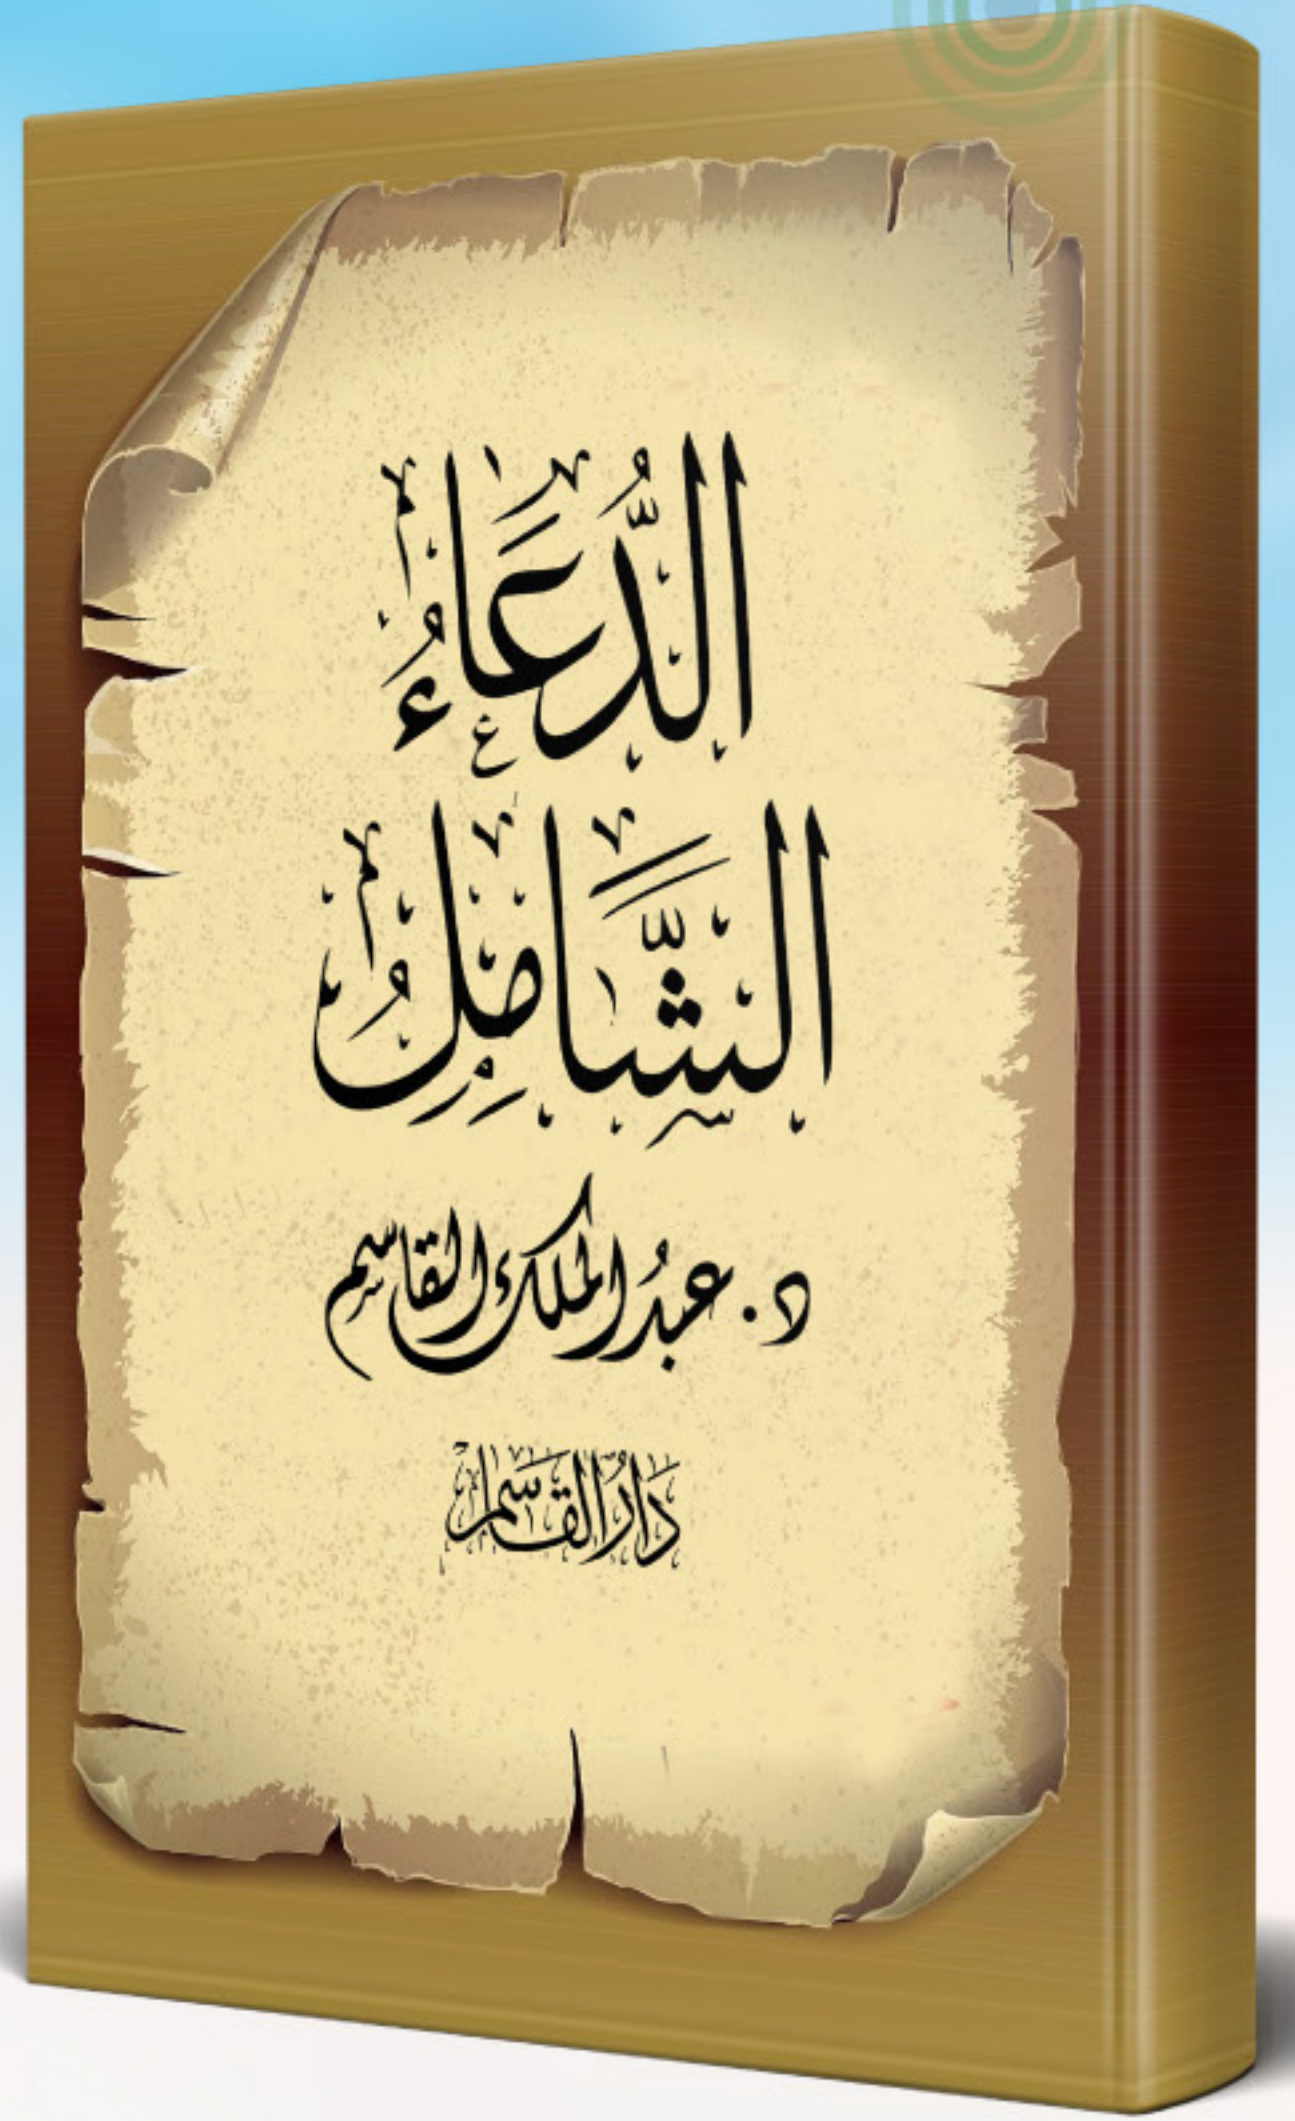 الدُّعَاءُ
الشَّامِلُ
د. عبدُ الملك القاسم
دَارُ القَاسِم